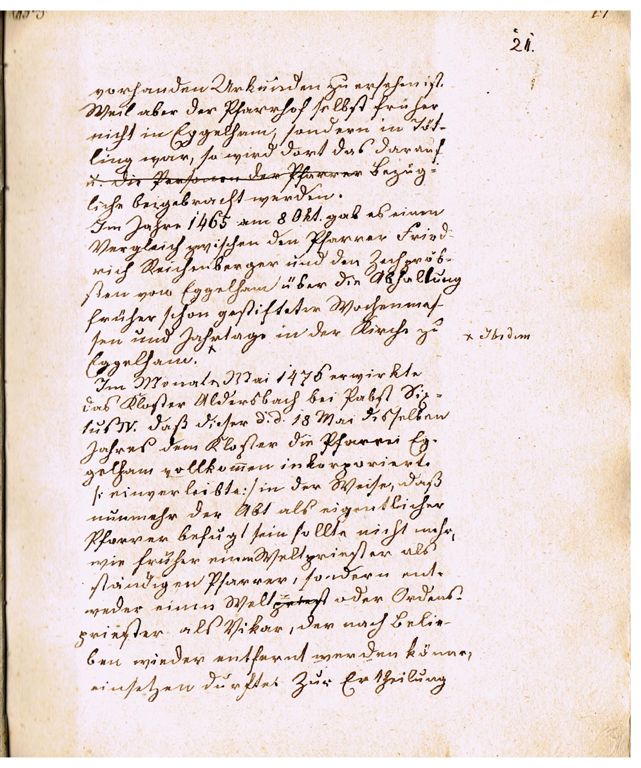 21.
vorhanden Urkunden zu ersehen ist.
Weil aber der Pfarrhof selbst früher
nicht in Eggelham, sondern in Töt-
ling war, so wird dort das darauf
u. die Personen der Pfarrer Bezüg-
liche beigebracht werden.
Im Jahre 1465 am 8 Okt. gab es einen
Vergleich zwischen den Pfarrer Fried-
rich Reichenberger und den Zechpröb-
sten von Eggelham über die Abhaltung
früher schon gestifteter Wochenmes-
sen und Jahrtage in der Kirche zu
Eggelham. x
x Ibidem
Im Monate Mai 1476 erwirkte
das Kloster Aldersbach bei Pabst Six-
tus IV. daß dieser d. d. 18 Mai desselben
Jahres dem Kloster die Pfarrei Eg-
gelham vollkommen inkorporierte
/: einverleibte :/ in der Weise, daß
nunmehr der Abt als eigentlicher
Pfarrer befugt sein sollte nicht mehr,
wie früher einen Weltpriester als
ständigen Pfarrer, sondern ent-
weder einen Weltpriest oder Ordens-
priester als Vikar, der nach Belie-
ben wieder entfernt werden könne,
einsetzen durfte. Zur Ertheilung